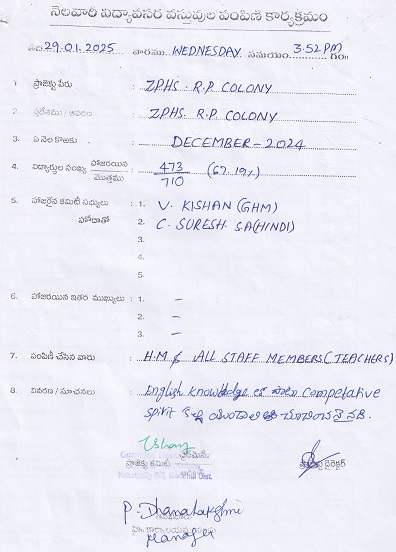 నెలవారి విద్యావసర వస్తువుల పంపిణి కార్యక్రమం
తేది 29.01.2025 వారము WEDNESDAY సమయం. 3:52 PM గం॥
1. ప్రాజెక్టు పేరు : ZPHS. R.P COLONY
2. ప్రదేశము / ఆవరణ : ZPHS. R.P COLONY
3. ఏ నెల కొఱకు : DECEMBER-2024
4. విద్యార్థుల సంఖ్య హాజరయిన / మొత్తము : 473 / 710 (67.19%)
5. హాజరైన కమిటీ సభ్యులు : 1. V. KISHAN (GHM)
హోదాతో 2. C. SURESH. SA(HINDI)
3.
4.
5.
6. హాజరయిన ఇతర ముఖ్యులు : 1. –
2. –
3. –
7. పంపిణీ చేసిన వారు : H.M & ALL STAFF MEMBERS. (TEACHERS)
8. వివరణ / సూచనలు : English knowledge తో పాటు competative
spirit
ఛైర్మెన్
ప్రాజెక్టు కమిటీ
డైరెక్టర్
P. Dhanalakshmi
Manager